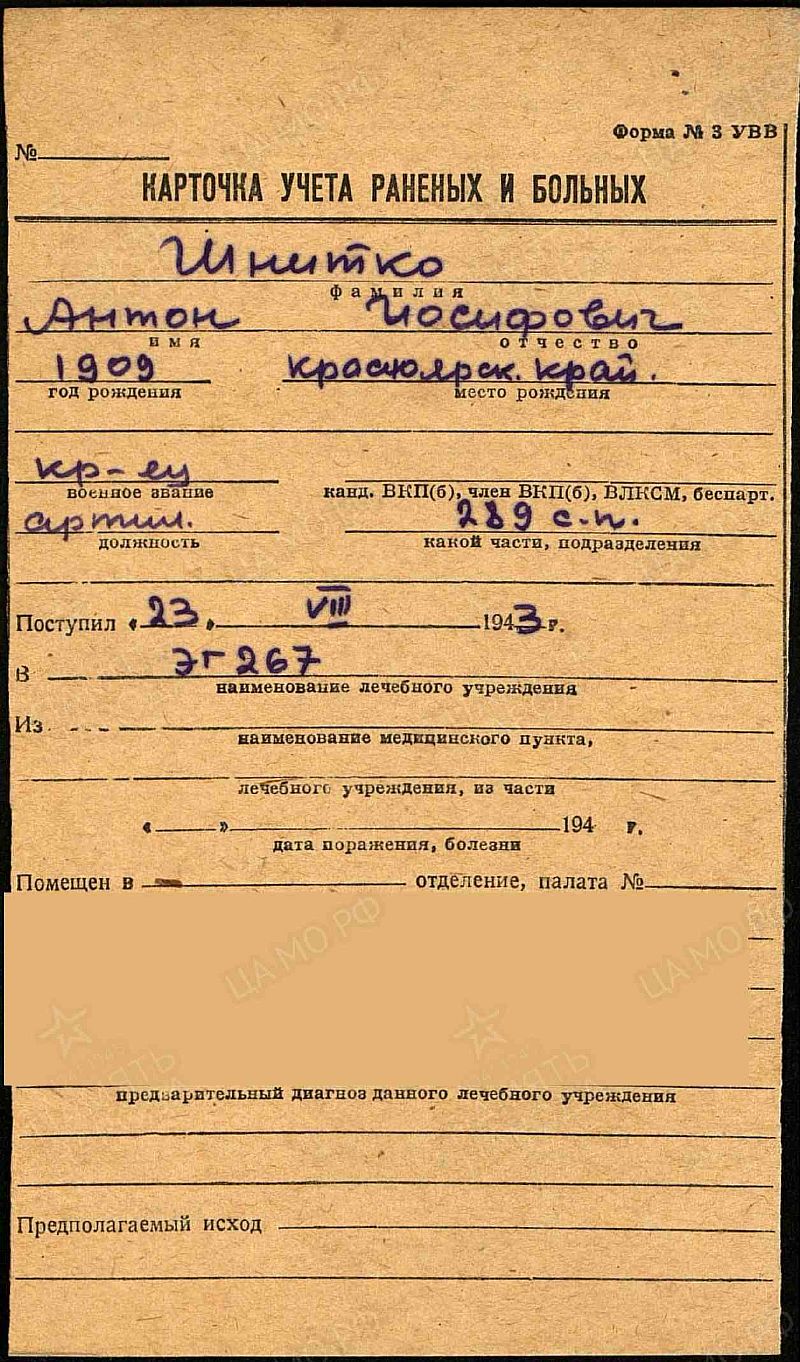 Форма № 3 УВВ
№
КАРТОЧКА УЧЕТА РАНЕНЫХ И БОЛЬНЫХ
Шнитко
фамилия
Антон Иосифович
имя отчество
1909 Красноярск. край.
год рождения место рождения
кр-ец
военное звание канд. ВКП(б), член ВКП(б), ВЛКСМ, беспарт.
артил. 289 с.п.
должность какой части, подразделения
Поступил « 23 » VIII 1943 г.
В ЭГ 267
наименование лечебного учреждения
Из
наименование медицинского пункта,
лечебного учреждения, из части
« » 194 г.
дата поражения, болезни
Помещен в отделение, палата №
ЦАМО РФ ЦАМО РФ
предварительный диагноз данного лечебного учреждения
Предполагаемый исход